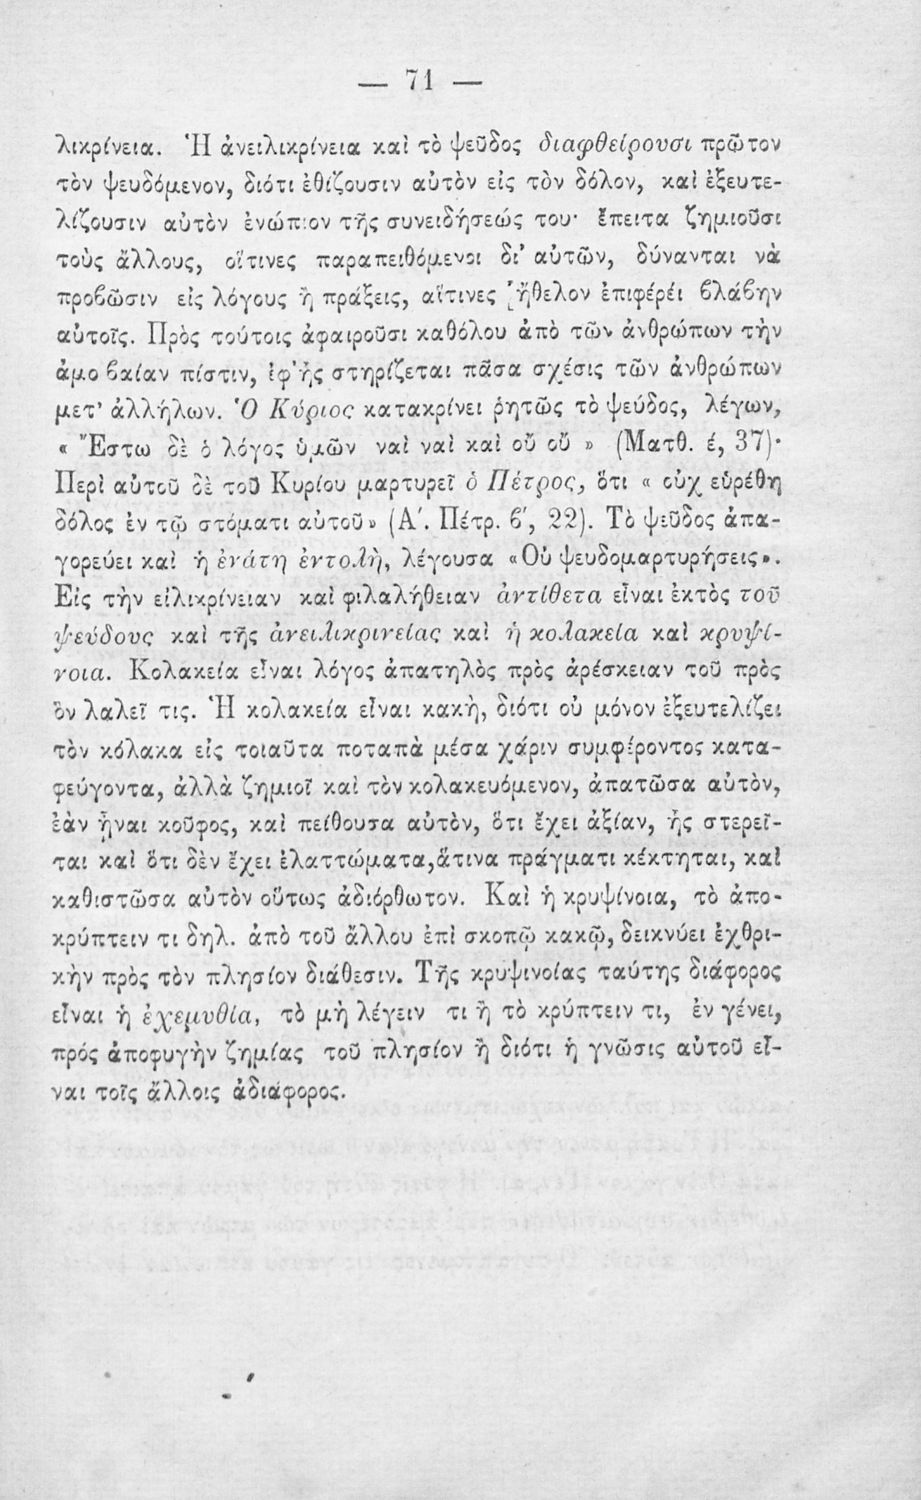 — 71 —
λικρίνεια. Ἡ ἀνειλικρίνεια καὶ τὸ ψεῦδος διαφθείρουσι πρῶτον
τὸν ψευδόμενον, διότι ἐθίζουσιν αὐτὸν εἰς τὸν δόλον, καὶ ἐξευτε-
λίζουσιν αὐτὸν ἐνώπιον τῆς συνειδήσεώς του· ἔπειτα ζημιοῦσι
τοὺς ἄλλους, οἵτινες παραπειθόμενοι δι’ αὐτῶν, δύνανται νὰ
προβῶσιν εἰς λόγους ἢ πράξεις, αἵτινες ἤθελον ἐπιφέρει βλάβην
αὐτοῖς. Πρὸς τούτοις ἀφαιροῦσι καθόλου ἀπὸ τῶν ἀνθρώπων τὴν
ἀμοβαίαν πίστιν, ἐφ’ἧς στηρίζεται πᾶσα σχέσις τῶν ἀνθρώπων
μετ’ ἀλλήλων. Ὁ Κύριος κατακρίνει ῥητῶς τὸ ψεύδος, λέγων,
« Ἔστω δὲ ὁ λόγος ὑμῶν ναὶ ναὶ καὶ οὔ οὔ » (Ματθ. έ, 37)·
Περὶ αὐτοῦ δὲ τοῦ Κυρίου μαρτυρεῖ ὁ Πέτρος, ὅτι « οὐχ εὑρέθη
δόλος ἐν τῷ στόματι αὐτοῦ» (Α΄. Πέτρ. β΄, 22). Τὸ ψεῦδος ἀπα-
γορεύει καὶ ἡ ἐνάτη ἐντολὴ, λέγουσα «Οὐ ψευδομαρτυρήσεις».
Εἰς τὴν εἰλικρίνειαν καὶ φιλαλήθειαν ἀντίθετα εἶναι ἐκτὸς τοῦ
ψεύδους καὶ τῆς ἀνειλικρινείας καὶ ἡ κολακεία καὶ κρυψί-
νοια. Κολακεία εἶναι λόγος ἀπατηλὸς πρὸς ἀρέσκειαν τοῦ πρὸς
ὃν λαλεῖ τις. Ἡ κολακεία εἶναι κακὴ, διότι οὐ μόνον ἐξευτελίζει
τὸν κόλακα εἰς τοιαῦτα ποταπὰ μέσα χάριν συμφέροντος κατα-
φεύγοντα, ἀλλὰ ζημιοῖ καὶ τὸν κολακευόμενον, ἀπατῶσα αὐτὸν,
ἐὰν ἦναι κοῦφος, καὶ πείθουσα αὐτὸν, ὅτι ἔχει ἀξίαν, ἧς στερεῖ-
ται καὶ ὅτι δὲν ἔχει ἐλαττώματα,ἅτινα πράγματι κέκτηται, καὶ
καθιστῶσα αὐτὸν οὕτως ἀδιόρθωτον. Καὶ ἡ κρυψίνοια, τὸ ἀπο-
κρύπτειν τι δηλ. ἀπὸ τοῦ ἄλλου ἐπὶ σκοπῷ κακῷ, δεικνύει ἐχθρι-
κὴν πρὸς τὸν πλησίον διάθεσιν. Τῆς κρυψινοίας ταύτης διάφορος
εἶναι ἡ ἐχεμυθία, τὸ μὴ λέγειν τι ἢ τὸ κρύπτειν τι, ἐν γένει,
πρός ἀποφυγὴν ζημίας τοῦ πλησίον ἢ διότι ἡ γνῶσις αὐτοῦ εἶ-
ναι τοῖς ἄλλοις ἀδιάφορος.